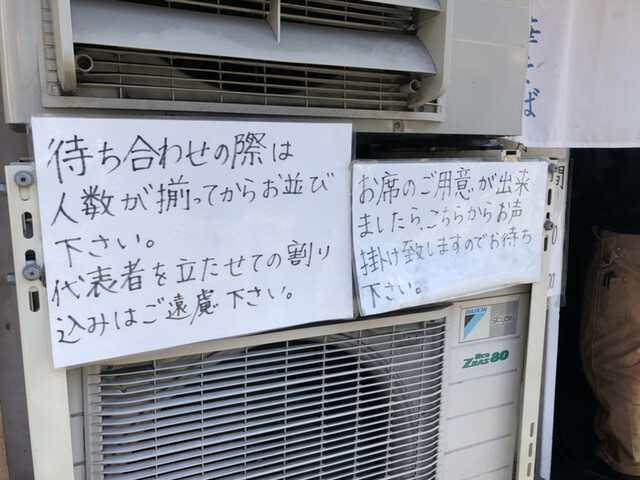 待ち合わせの際は
人数が揃ってからお並び
下さい。
代表者を立たせての割り
込みはご遠慮下さい。
お席のご用意が出来
ましたら、こちらからお声
掛け致しますのでお待ち
下さい。
そば
間
DAIKIN
Eco
ZEAS80